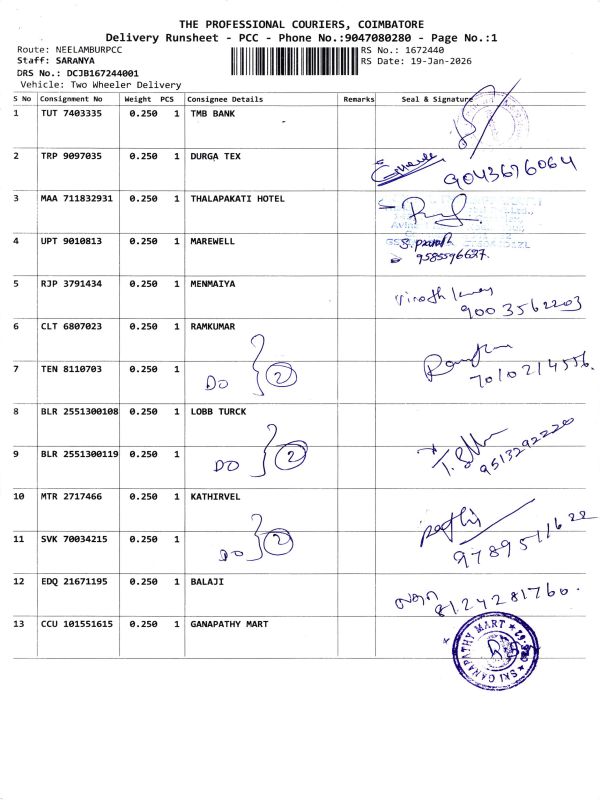 THE PROFESSIONAL COURIERS, COIMBATORE
Delivery Runsheet - PCC - Phone No.:9047080280 - Page No.:1
Route: NEELAMBURPCC RS No.: 1672440
Staff: SARANYA RS Date: 19-Jan-2026
DRS No.: DCJB167244001
Vehicle: Two Wheeler Delivery
S No Consignment No Weight PCS Consignee Details Remarks Seal & Signature
1 TUT 7403335 0.250 1 TMB BANK
2 TRP 9097035 0.250 1 DURGA TEX
9043676064
3 MAA 711832931 0.250 1 THALAPAKATI HOTEL
4 UPT 9010813 0.250 1 MAREWELL
9585596627.
5 RJP 3791434 0.250 1 MENMAIYA
9003562203
6 CLT 6807023 0.250 1 RAMKUMAR
7 TEN 8110703 0.250 1
DO 2
7010214556.
8 BLR 2551300108 0.250 1 LOBB TURCK
9 BLR 2551300119 0.250 1
DO 2
9513292220
10 MTR 2717466 0.250 1 KATHIRVEL
11 SVK 70034215 0.250 1
DO 2
9789511622
12 EDQ 21671195 0.250 1 BALAJI
8124281760.
13 CCU 101551615 0.250 1 GANAPATHY MART
SRI GANAPATHY MART